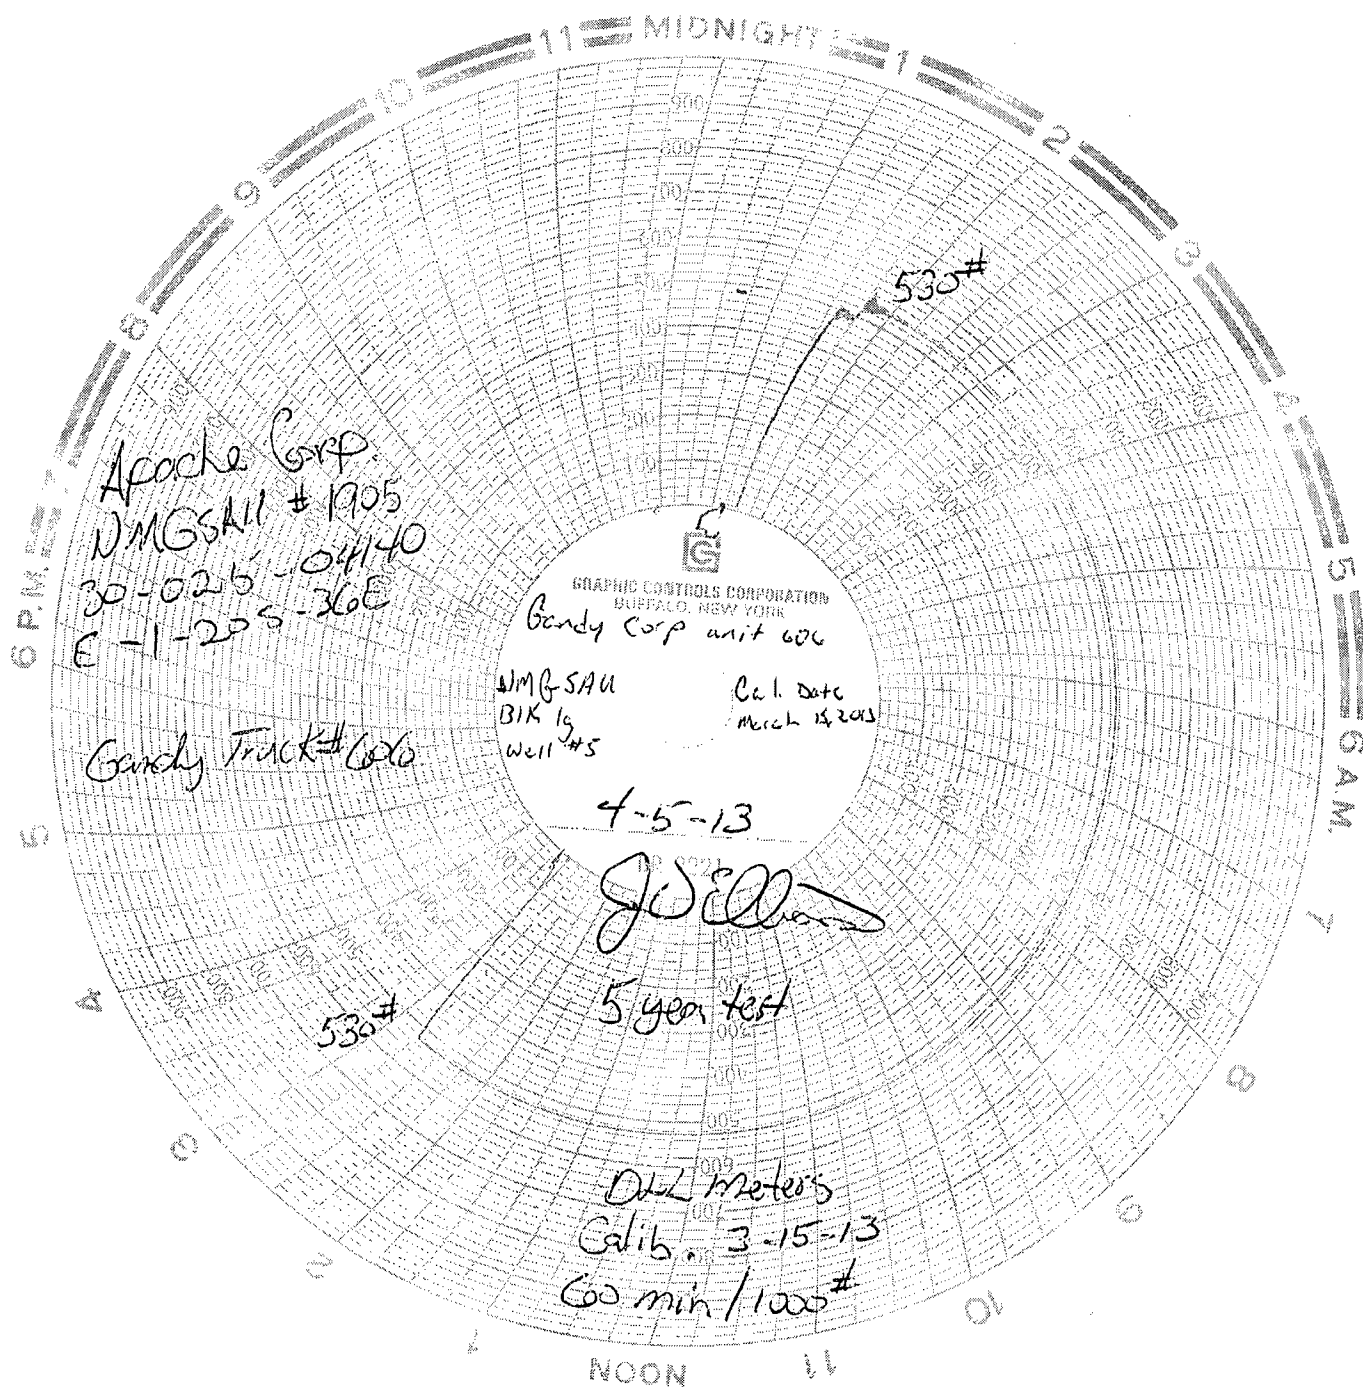 MIDNIGHT
1
2
3
4
5
6 A.M.
7
8
9
10
11
NOON
1
2
3
4
5
6 P.M.
8
9
10
11
900
800
700
500
400
300
200
100
530#
Apache Corp.
NMGSAU #1905
30-025-04140
E-1-20S-36E
Gandy Truck #606
G
GRAPHIC CONTROLS CORPORATION
BUFFALO, NEW YORK
Gandy Corp unit 606
NMGSAU
Blk 19
Well #5
Cal. Date
March 15, 2013
4-5-13
530#
5 year test
D&L Meters
Calib. 3-15-13
60 min/1000#